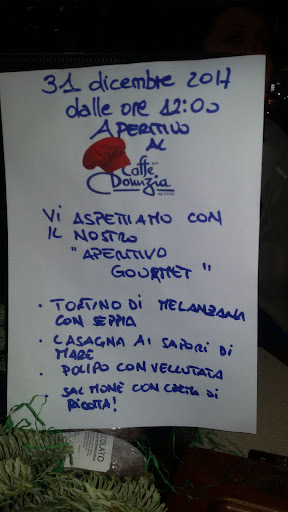 31 dicembre 2017
dalle ore 12:00
APERITIVO
AL
Caffe
Domizia
Vi ASPETTIAMO CON
IL NOSTRO
"APERITIVO
GOURMET"
• TORTINO DI MELANZANA
CON SEPPIA
• LASAGNA AI SAPORI DI
MARE
• POLIPO CON VELLUTATA
• SALMONE CON CREMA DI
RICOTTA!